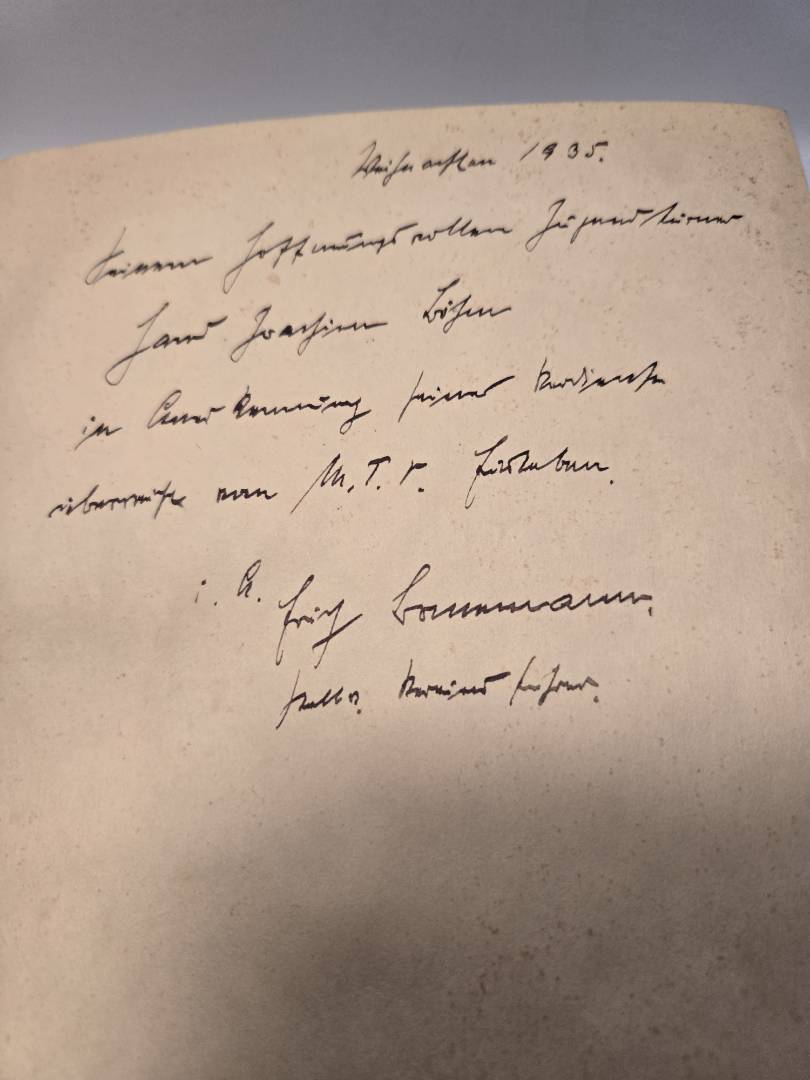 Weihnachten 1935.
Seinem hoffnungsvollen Jugendturner
Hans Joachim Böhm
in Anerkennung seiner Verdienste
überreicht vom M.T.V.
i. A. Erich Bonnemann.
stellv. Vereinsführer.